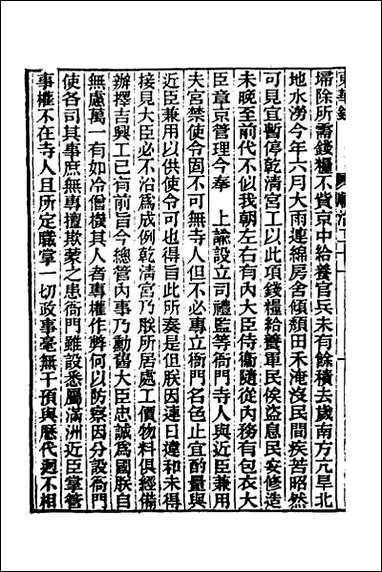 東華錄 順治二十一
埽除所需錢糧不貲京中給養官兵未有餘積去歲南方亢旱北
地水澇今年六月大雨連綿房舍傾頹田禾淹沒民間疾苦昭然
可見宜暫停乾清宮工以此項錢糧給養軍民俟盜息民安修造
未晚至前代不似我朝左右有內大臣侍衞隨從內務有包衣大
臣章京管理今奉　上諭設立司禮監等衙門寺人與近臣兼用
夫宮禁使令固不可無寺人但不必專立衙門名色止宜酌量與
近臣兼用以供使令可也得旨此所奏是但朕因連日違和未得
接見大臣必不沿爲成例乾清宮乃朕所居處工價物料俱經備
辦擇吉興工已有前旨今總管內事乃勳舊大臣忠誠爲國朕自
無慮萬一有如冷僧機其人者專權作弊何以防察因分設衙門
使各司其事庶無專擅欺蒙之患衙門雖設悉屬滿洲近臣掌管
事權不在寺人且所定職掌一切政事毫無干預與歷代迥不相